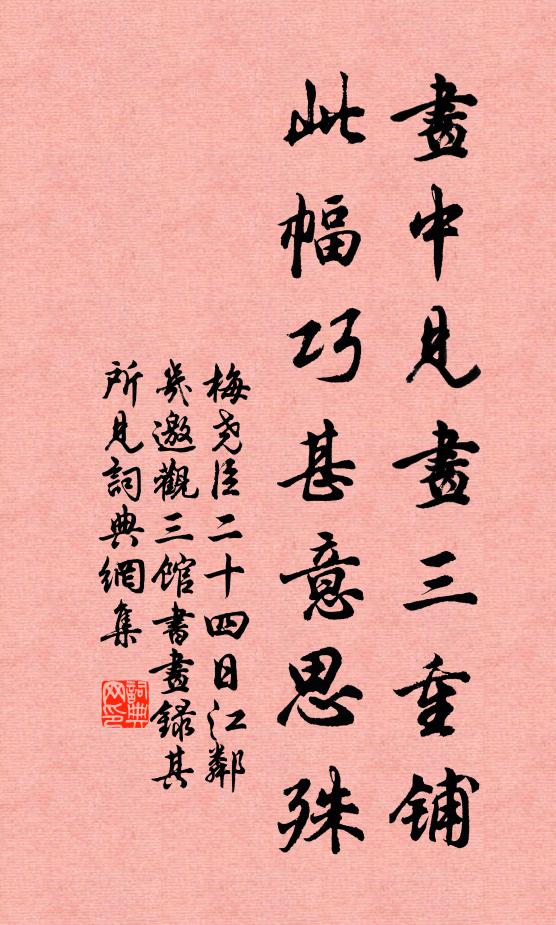 畫中見畫三重鋪
此幅巧甚意思殊
梅堯臣二十四日江鄰
幾邀觀三館書畫錄其
所見詞典網集
詞典
网印